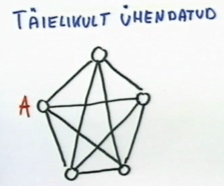 TÄIELIKULT ÜHENDATUD
A